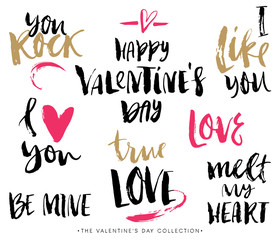 you
ROCK
HAPPY
VALENTINE'S
DAY
I
like
YOU
I
you
true
LOVE
LOVE
BE MINE
melt
my
HEART
•THE VALENTINE'S DAY COLLECTION•